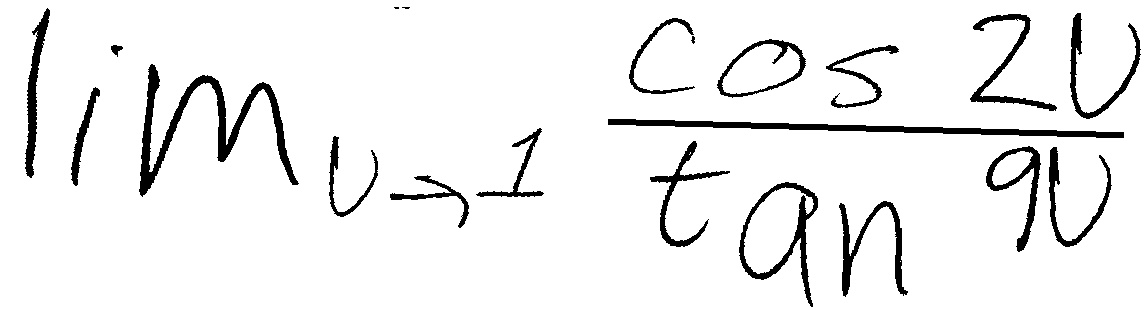 lim_{v→1} \frac{cos 2v}{tan 9v}